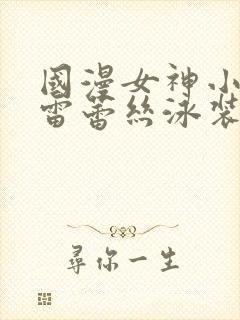 國漫女神小
雷蕾絲泳裝
尋你一生